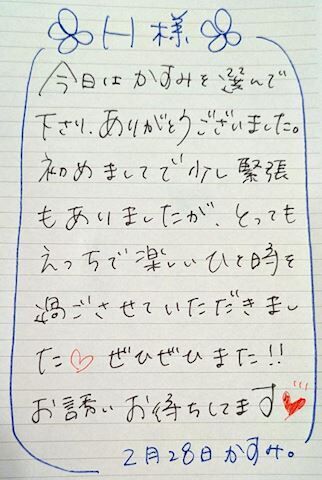 H様
今日はかすみを選んで
下さり、ありがとうございました。
初めましてで少し緊張
もありましたが、とっても
えっちで楽しいひと時を
過ごさせていただきまし
た♡ ぜひぜひまた!!
お誘いお待ちしてます♥
2月28日かすみ。